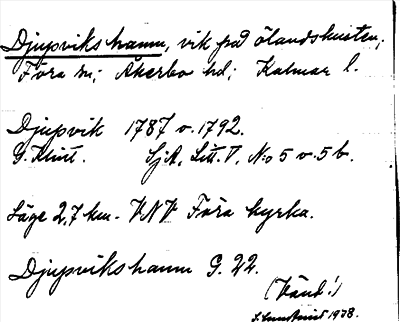 Djupvikshamn, vik på ölandskusten;
Föra sn; Åkerbo hd; Kalmar l.
Djupvik 1787 o. 1792.
G. Klint. SjA, Litt. V, N:o 5 o. 5 b.
Läge 2,7 km. VNV Föra kyrka.
Djupvikshamn G. 22.
(Vänd!)
1938.